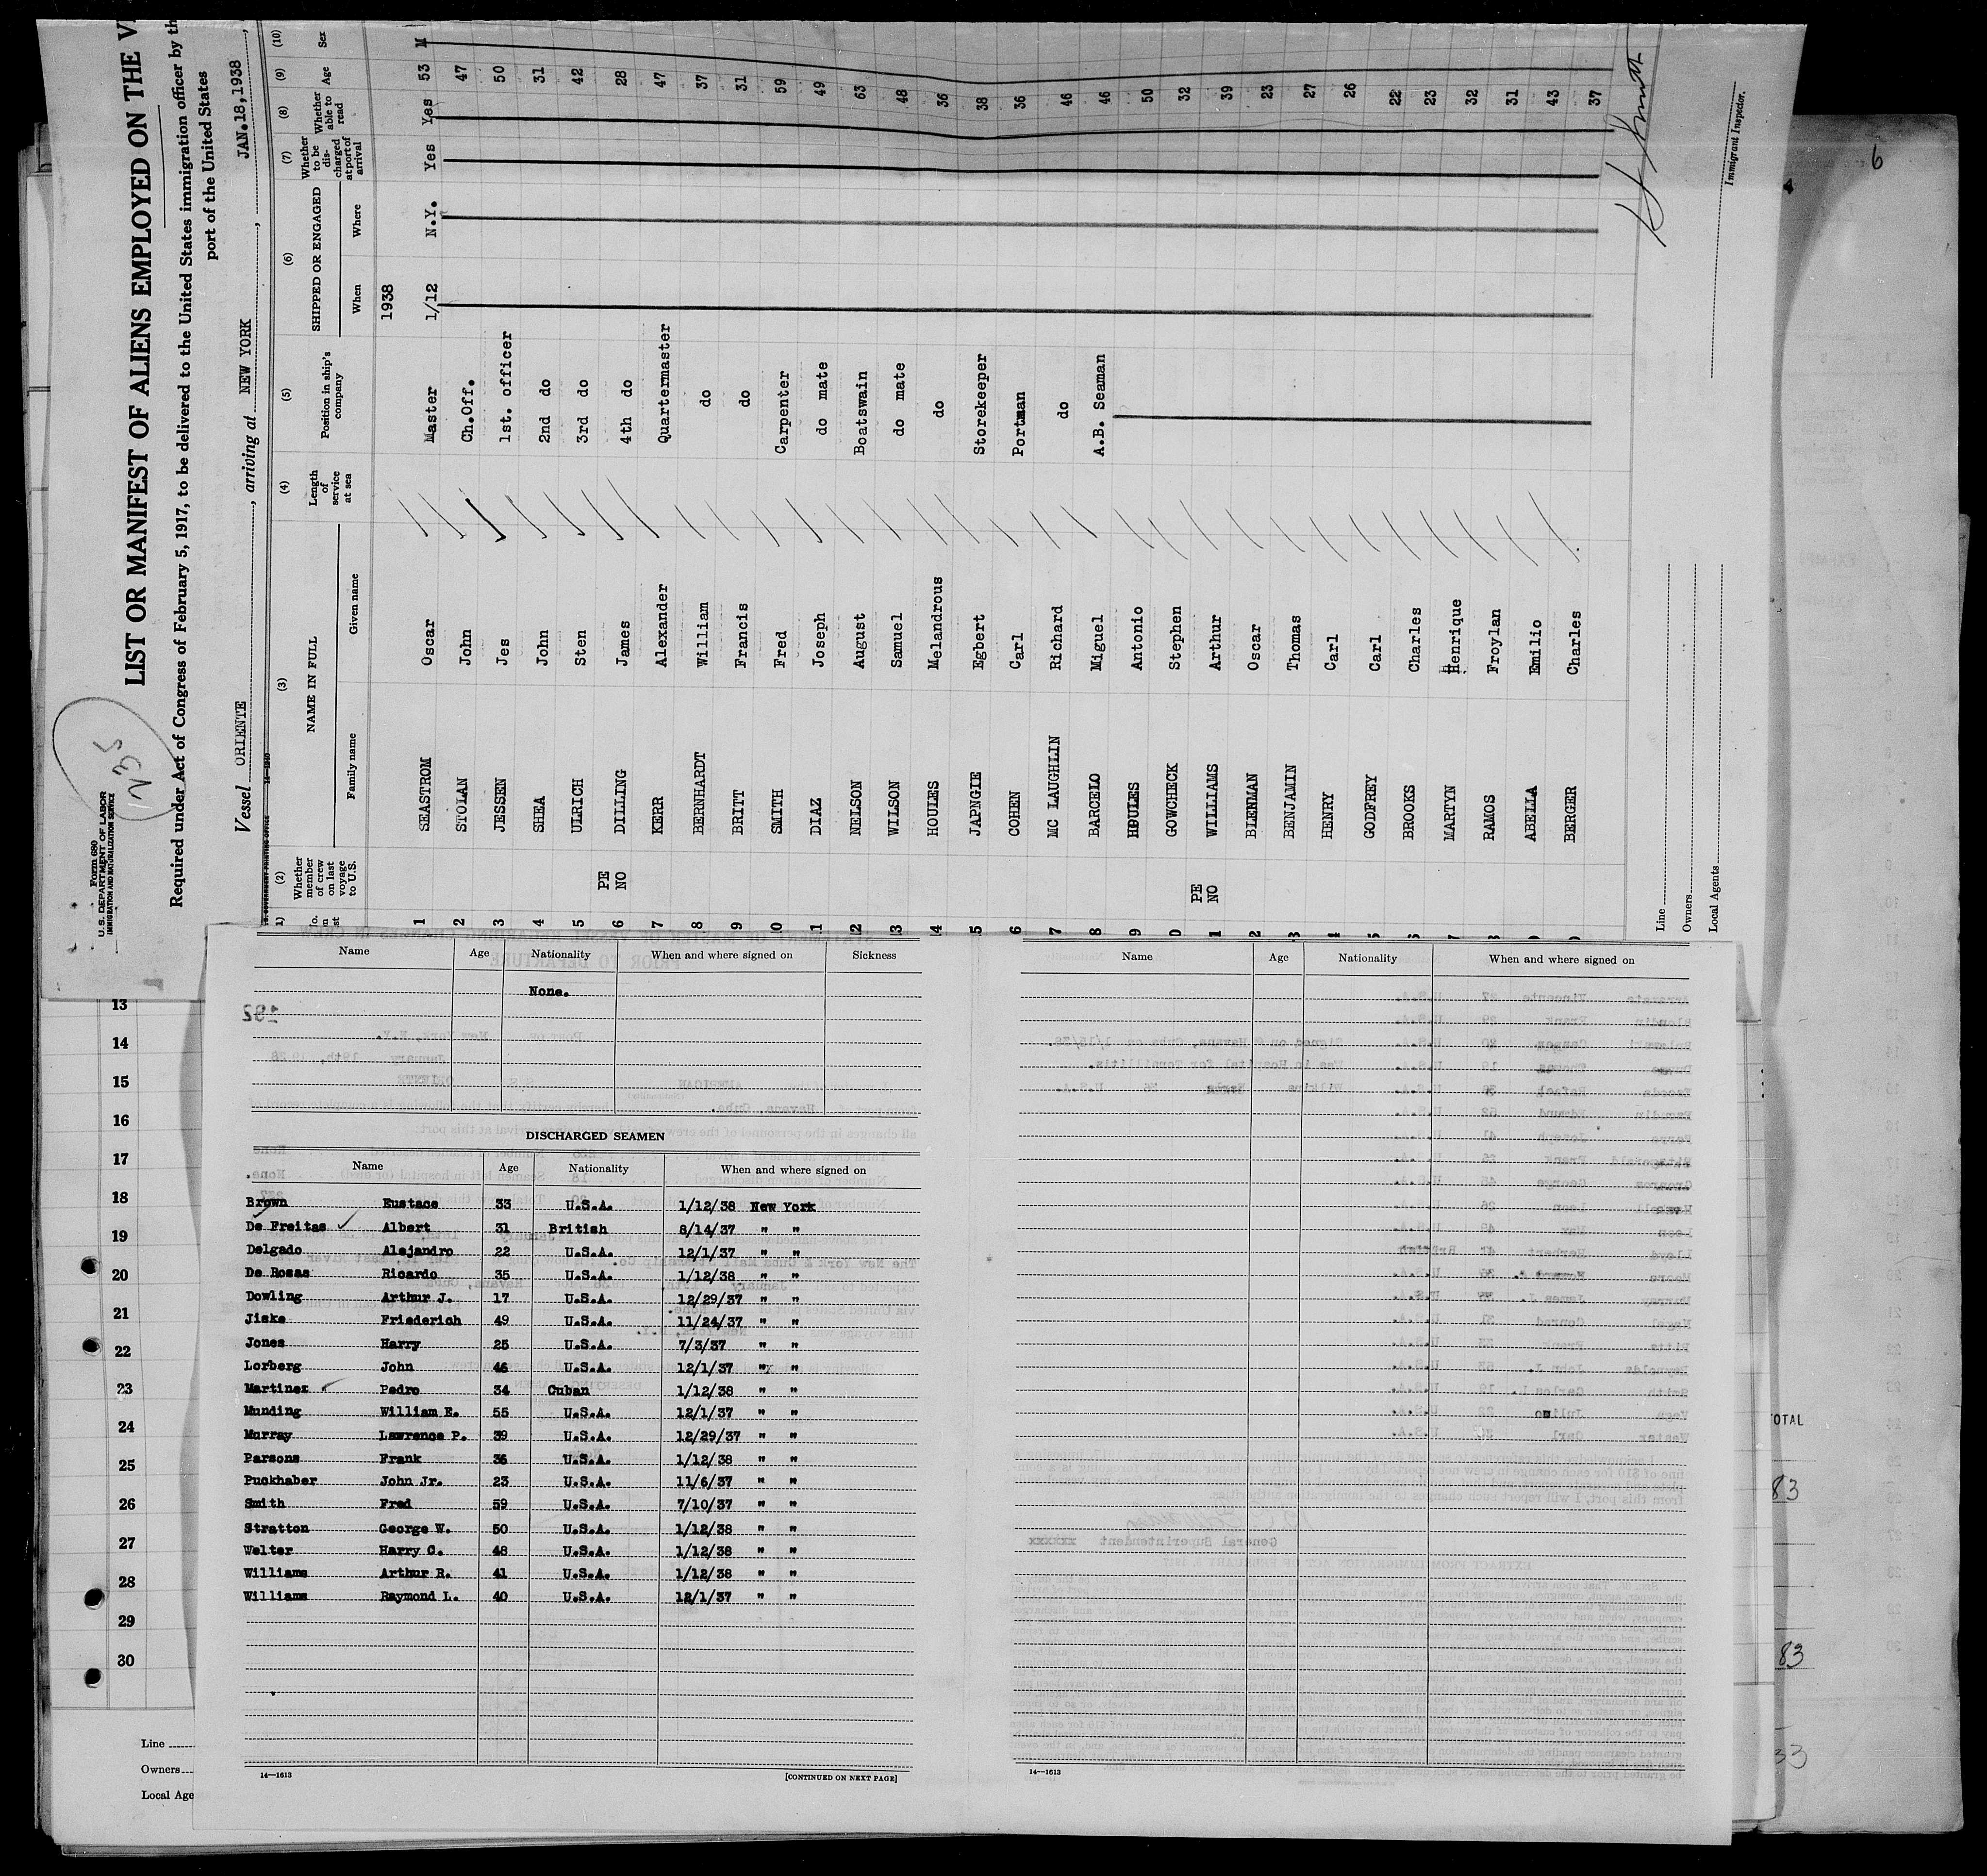 Form 680
U. S. DEPARTMENT OF LABOR
IMMIGRATION AND NATURALIZATION SERVICE
LIST OR MANIFEST OF ALIENS EMPLOYED ON THE
Required under Act of Congress of February 5, 1917, to be delivered to the United States immigration officer by
port of the United States
Vessel ORIENTE, arriving at NEW YORK, JAN.18,1938,
(2) (3) (4) (5) (6) (7) (8) (9) (10)
Whether member of crew on last voyage to U.S.
NAME IN FULL
Family name Given name
Length of service at sea
Position in ship's company
SHIPPED OR ENGAGED
When Where
Whether to be discharged at port of arrival
Whether able to read
Age
Sex
1938
1 SEASTROM Oscar Master 1/12 N.Y. Yes Yes 53 M
2 STOLAN John Ch.Off. 47
3 JESSEN Jes 1st. officer 50
4 SHEA John 2nd do 31
5 ULRICH Sten 3rd do 42
PE NO
6 DILLING James 4th do 28
7 KERR Alexander Quartermaster 47
8 BERNHARDT William do 37
9 BRITT Francis do 31
0 SMITH Fred Carpenter 59
1 DIAZ Joseph do mate 49
2 NELSON August Boatswain 63
3 WILSON Samuel do mate 48
4 HOULES Melandrous do 36
5 JAPNGIE Egbert Storekeeper 38
6 COHEN Carl Portman 36
7 MC LAUGHLIN Richard do 46
8 BARCELO Miguel A.B. Seaman 46
9 HOULES Antonio 50
0 GOWCHECK Stephen 32
PE NO
1 WILLIAMS Arthur 39
2 BLENMAN Oscar 23
3 BENJAMIN Thomas 27
4 HENRY Carl 26
5 GODFREY Carl 22
6 BROOKS Charles 23
7 MARTYN Henrique 32
8 RAMOS Froylan 31
9 ABELLA Emilio 43
0 BERGER Charles 37
Line
Owners
Local Agents
Immigrant Inspector.
6
Name Age Nationality When and where signed on Sickness
None.
DISCHARGED SEAMEN
Name Age Nationality When and where signed on
Brown Eustace 33 U.S.A. 1/12/38 New York
De Freitas Albert 31 British 8/14/37 " "
Delgado Alejandro 22 U.S.A. 12/1/37 " "
De Rosas Ricardo 35 U.S.A. 1/12/38 " "
Dowling Arthur J. 17 U.S.A. 12/29/37 " "
Jiske Friederich 49 U.S.A. 11/24/37 " "
Jones Harry 25 U.S.A. 7/3/37 " "
Lorberg John 46 U.S.A. 12/1/37 " "
Martinez Pedro 34 Cuban 1/12/38 " "
Munding William E. 55 U.S.A. 12/1/37 " "
Murray Lawrence P. 39 U.S.A. 12/29/37 " "
Parsons Frank 36 U.S.A. 1/12/38 " "
Puckhaber John Jr. 23 U.S.A. 11/6/37 " "
Smith Fred 59 U.S.A. 7/10/37 " "
Stratton George W. 50 U.S.A. 1/12/38 " "
Welter Harry C. 48 U.S.A. 1/12/38 " "
Williams Arthur R. 41 U.S.A. 1/12/38 " "
Williams Raymond L. 40 U.S.A. 12/1/37 " "
14—1613 [CONTINUED ON NEXT PAGE]
Name Age Nationality When and where signed on
14—1613
13
14
15
16
17
18
19
20
21
22
23
24
25
26
27
28
29
30
Line
Owners
Local Age
OTAL
83
83
33